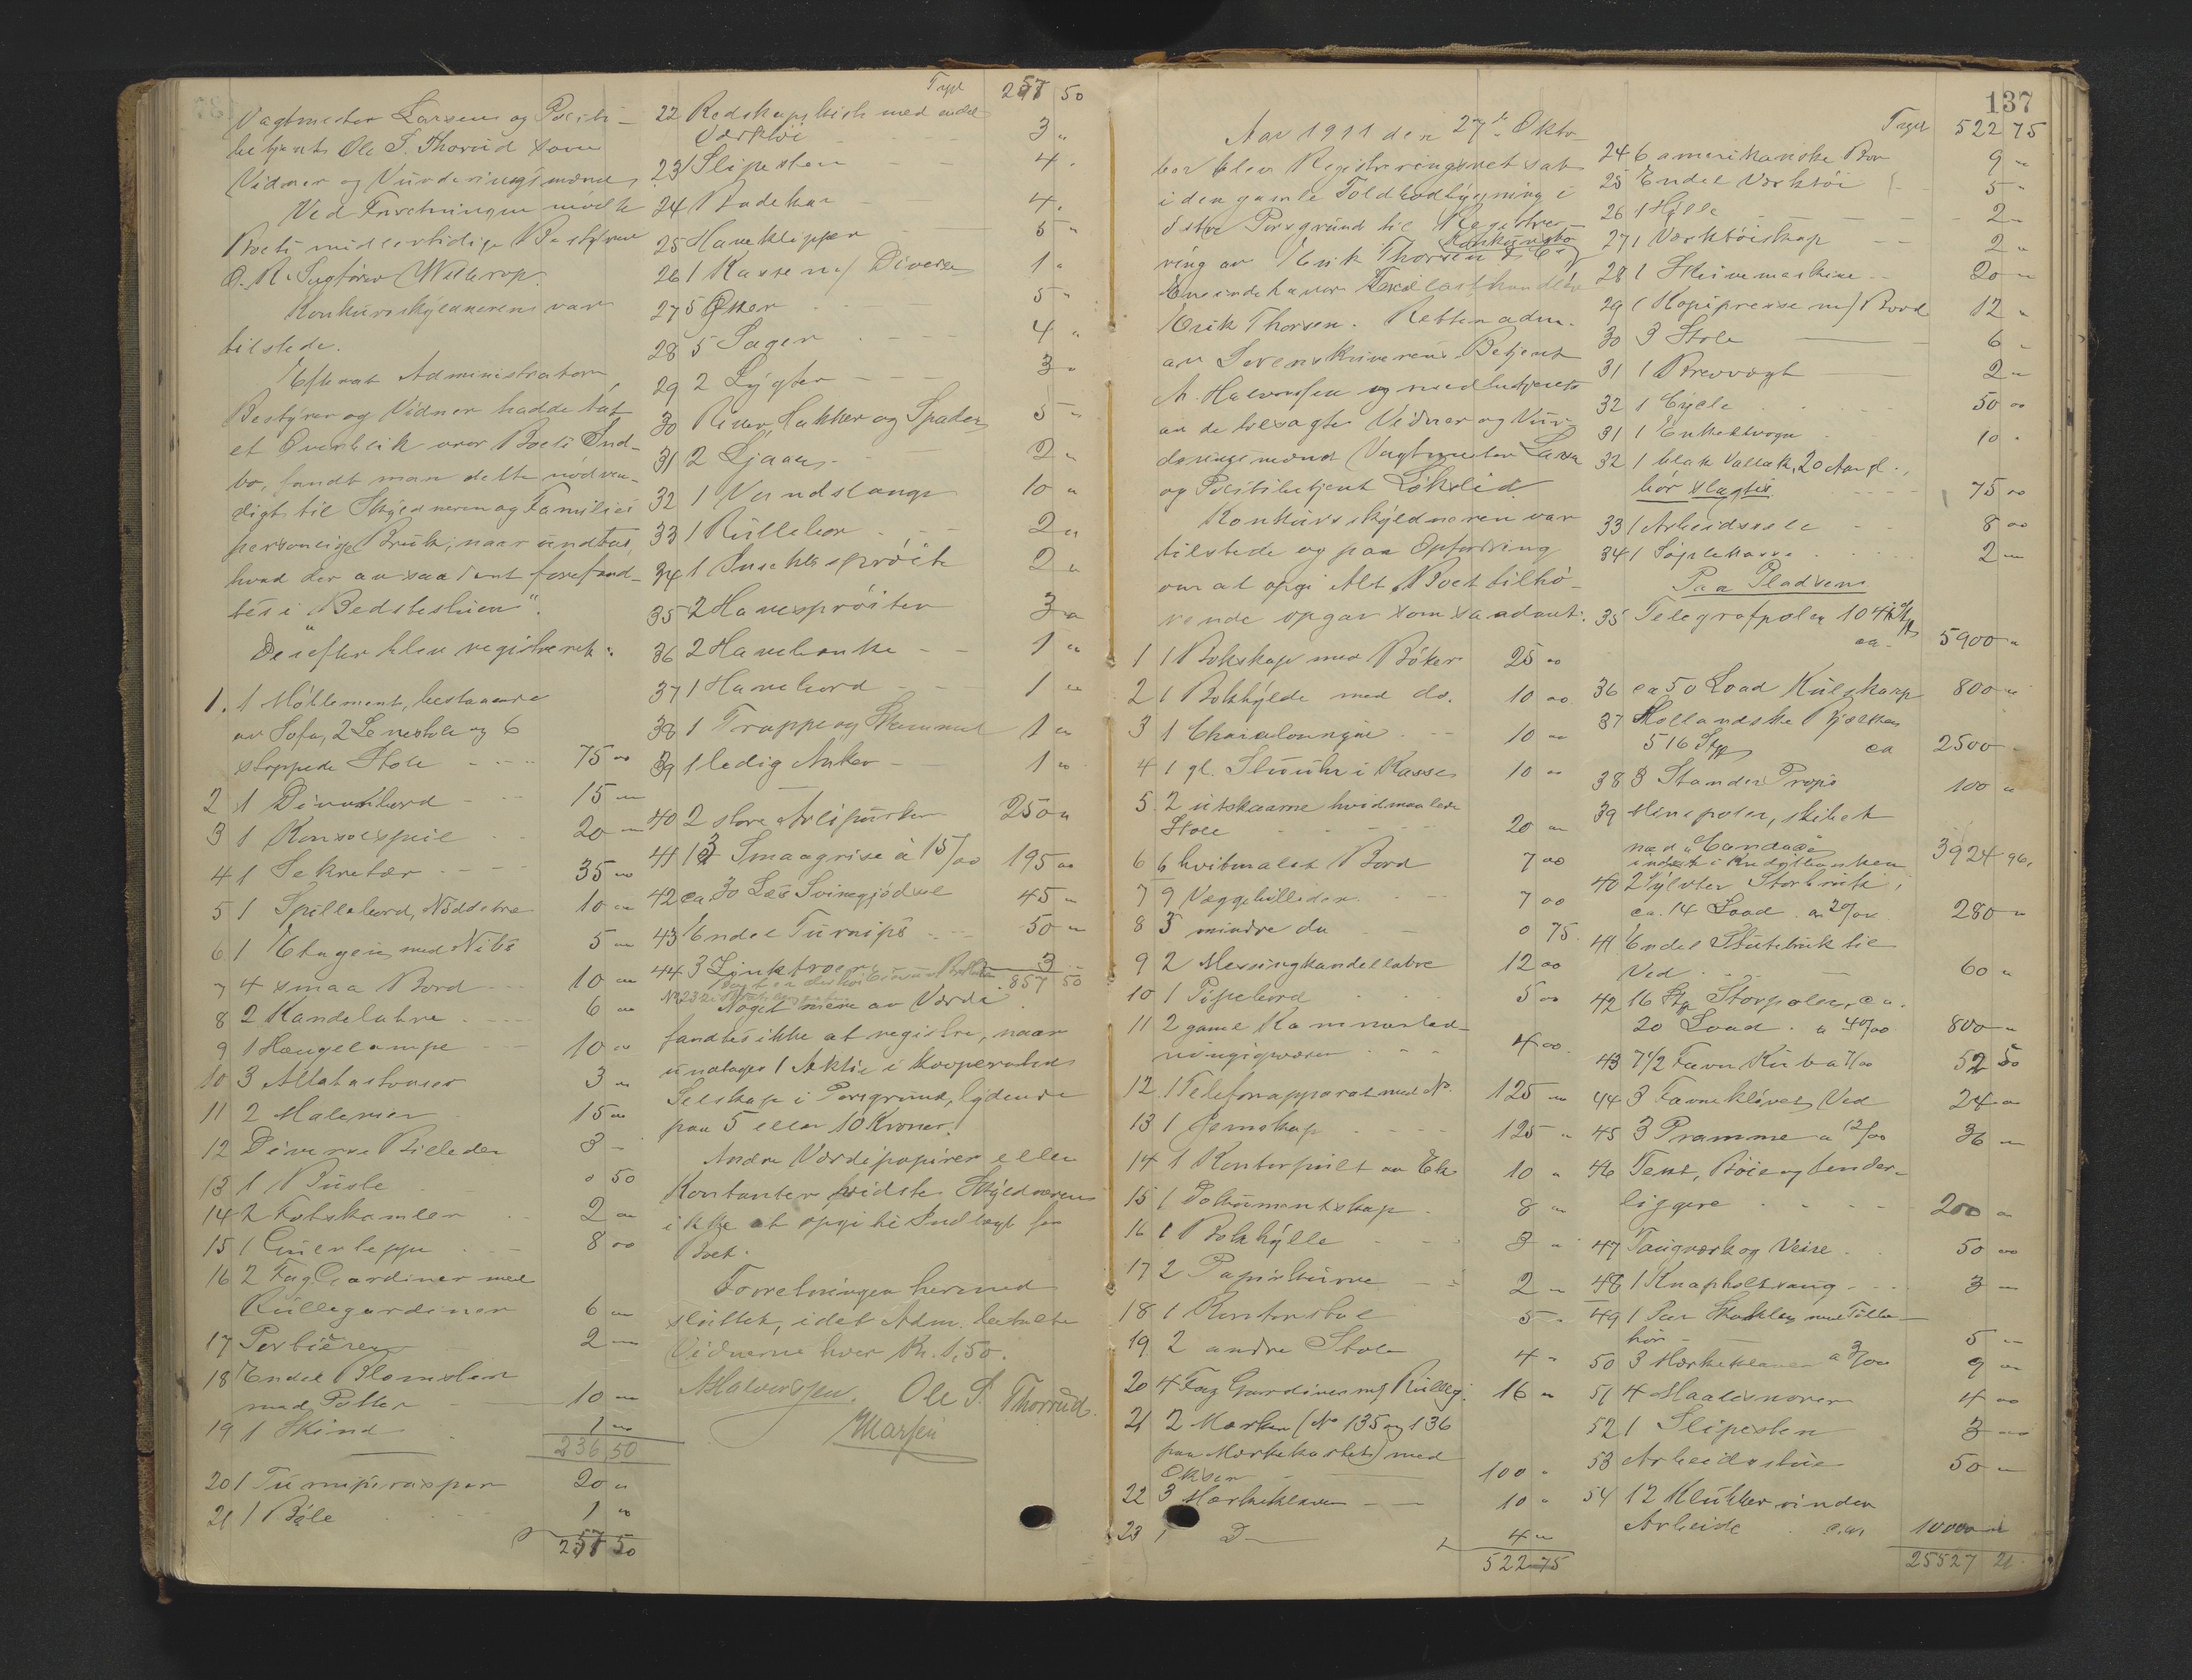 Vagtmester Larsen og Politi-
betjent Ole S. Thorrud som
Vidner og Vurderingsmænd,
Ved Forretningen mødte
Boets midlertidige Bestyrer
O. R. Sagfører
Konkursskyldneren var
tilstede.
Efterat Administrator,
Bestyrer og Vidner hadde tat
et Overblik over Boets Ind-
bo, fandt man dette nødven-
digt til Skyldneren og Families
personlige Bruk, naar undtas,
hvad der av saadant forefand-
tes i "Bedstestuen".
Derefter blev registreret:
1. 1 Møblement, bestaaende
av Sofa, 2 Lenestole og 6
stoppede Stole 75 00
2 1 Divanbord 15 "
3 1 Konsolspeil 20 "
4 1 Sekretær 35 "
5 1 Spillebord, Nøddetræ 10 "
6 1 Etagere med Nips 5 "
7 4 smaa Bord 10 "
8 2 Kandelabre 6 "
9 1 Hængelampe 10 "
10 3 3 "
11 2 Malerier 15 "
12 Diverse Billeder 3 "
13 1 Büste 0 50
14 2 Fotskamler 2 "
15 1 Gulvteppe 8 00
16 2 Fag Gardiner med
Rullegardiner 6 "
17 Portierer 2 "
18 Endel Blomster
med Potter 10 "
19 1 Skind 1 "
236 50
20 1 Turnipsrasper 20 "
21 1 Bøle 1 "
257 50
Trspt 257 50
22 Redskapskiste med endel
Værktøi 3 "
23 1 Slipesten 4 "
24 1 Badekar 4 "
25 1 Haveklipper 5 "
26 1 Kasse m/ Diverse 1 "
27 5 Økser 5 "
28 5 Sager 4 "
29 2 Lygter 3 "
30 River, Hakker og Spader 5 "
31 2 Ljaaer 2 "
32 1 Vandslange 10 "
33 1 Rullebør 2 "
34 1 Insektssprøite 2 "
35 2 Havesprøiter 3 "
36 2 Havebænke 1 "
37 1 Havebord 1 "
38 1 Trappe og Skammel 1 "
39 1 ledig Anker 1 "
40 2 store Avlspurker 250 "
41 13 Smaagrise à 15/00 195 00
42 ca. 30 Læs Svinegjødsel 45 "
43 Endel Turnips 50 "
44 3 3 "
857 50
Noget mere av Værdi
fandtes ikke at registre, naar
undtages 1 Aktie i Kooperativt
Selskap i Porsgrund, lydende
paa 5 eller 10 Kroner.
Andre Værdipapirer eller
Kontanter vidste Skyldneren
ikke at opgi til Indtægt for
Boet.
Forretningen hermed
sluttet, idet Adm. betalte
Vidnerne hver Kr. 1,50.
AHalvorsen. Ole S. Thorrud.
MLarsen
137
Aar 1911 den 27de Okto-
ber blev Registreringsret sat
i den gamle Toldbodbygning i
Østre Porsgrund til Registrer-
Konkursbo
ring av Erik Thorsen & Co,
Eneindehaver Trælasthandler
Erik Thorsen. Retten adm.
av Sorenskriverens Betjent
A. Halvorsen og medbetjentes
av de tilsagte Vidner og Vur-
deringsmænd Vagtmester Larsen
og Politibetjent Løkslid.
Konkursskyldneren var
tilstede og paa Opfordring
om at opgi Alt, Boet tilhø-
rende opgav som saadant:
1 1 Bokskap med Bøker 25 00
2 1 Bokhylde med do. 10 00
3 1 Chaiselongue 10 00
4 1 gl. Stuuhr i Kasse 10 00
5 2 utskaarne hvidmalede
Stole 20 "
6 6 hvitmalet Bord 7 00
7 9 Væggebilleder 7 00
8 3 mindre do 0 75
9 2 Messingkandellabre 12 00
10 1 Pipebord 5 00
11 2 gamle
4 00
12 1 Telefonapparat med No 125 "
13 1 Jernskap 125 "
14 1 Kontorpult av Ek 10 "
15 1 Dokumentskap 8 "
16 1 Bokhylle 3 "
17 2 Papirkurve 2 "
18 1 Kontorstol 5 "
19 2 andre Stole 4 "
20 4 Fag Gardiner m/ Rulleg. 16 "
21 2 Merker (No 135 og 136
paa Merkekartet) med
Økser 100 "
22 3 Merkeklaver 10 "
23 1 D- 4 "
522 75
Trspt 522 75
24 6 amerikanske Bor 9 "
25 Endel Værktøi 5 "
26 1 Hylle 2 "
27 1 Værktøiskap 2 "
28 1 Skrivemaskine 20 "
29 1 Kopipresse m/ Bord 12 "
30 3 Stole 6 "
31 1 Brevvægt 2 "
32 1 Cycle 50 00
31 1 Enkeltvogn 10 "
32 1 blak Vallak, 20 Aar gl.,
bør slagtes 75 00
33 1 Arbeidssele 8 00
34 1 Søplekasse 2 "
Paa Pladsen
35 Telegrafpoler 104½ St
ca. 5900 "
36 ca 50 Load Kulskarp 800 "
37 Hollandske Bjælker
516 St ca 2500 "
38 8 Stander Props 100 "
39 Minepoler, skibet
med "Candace"
indsat i Kreditbanken 3924 96
40 2 Tylvter Storbruk,
ca. 14 Load a 20/00 280 "
41 Endel Stutebruk til
Ved 60 "
42 16 Storpoler, ca.
20 Load a 40/00 800 "
43 7 1/2 Favn Kub a 7/00 52 50
44 3 Favne kløvet Ved 24 "
45 3 Pramme a 12/00 36 "
46 Bøie og fender-
liggere 200 "
47 Taugverk og Veire 50 00
48 1 3 "
49 1 Par Skokler med Tilbe-
hør 5 "
50 3 Merkeklaver a 3/00 9 "
51 4 Maalesnorer 4 00
52 1 Slipesten 3 00
53 Arbeidsstue 50 "
54 12 Klukker under
Arbeide ca. 10000 "
25527 21